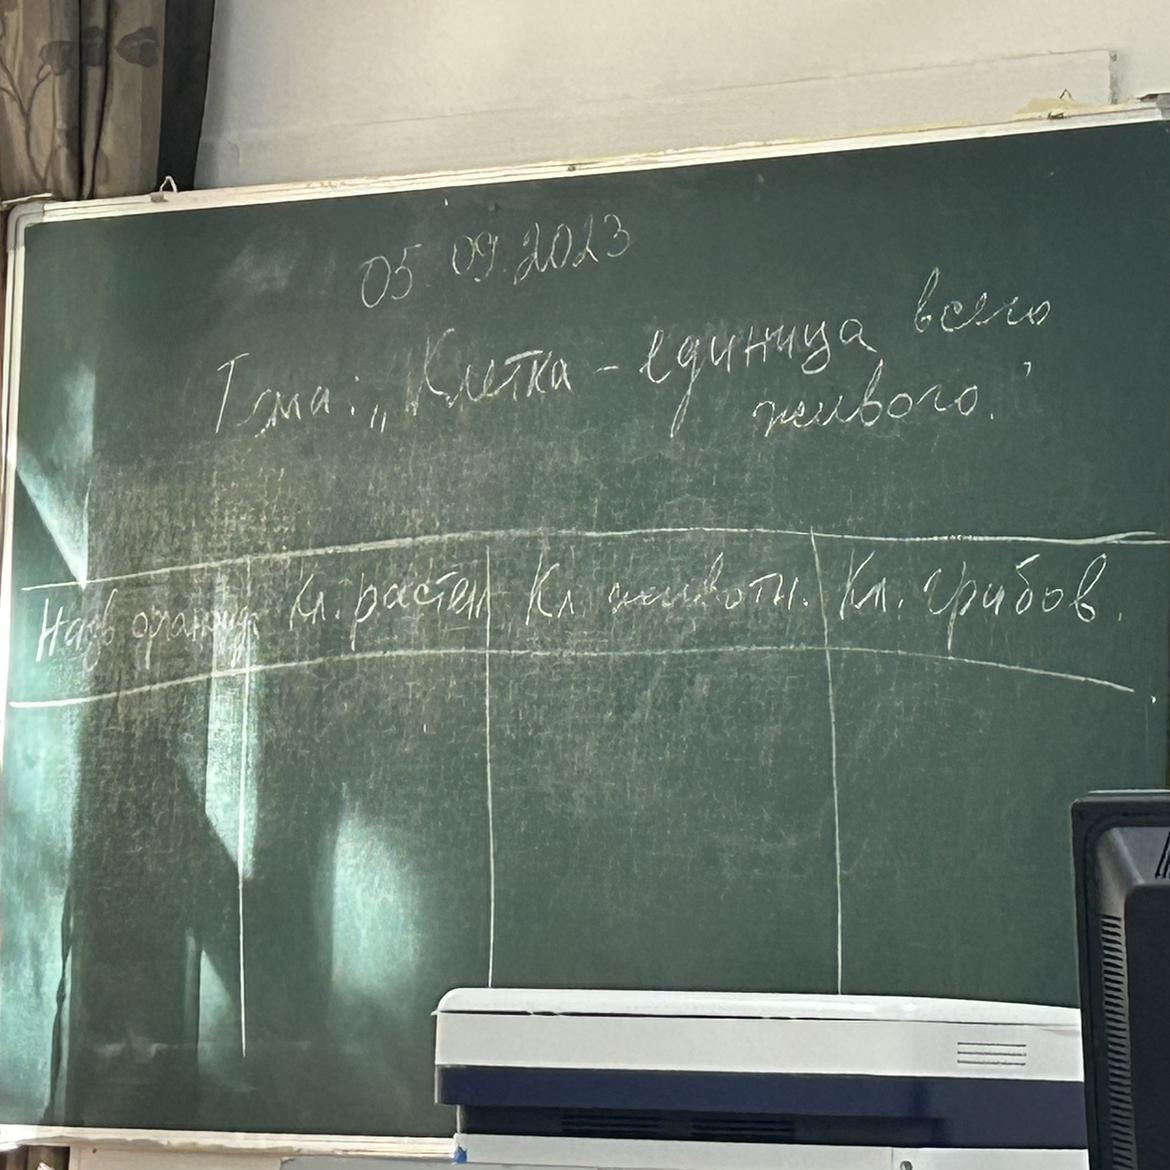 05.09.2023
Тема: „Клетка – единица всего
живого."
Назв органоид. Кл. растен Кл. животн. Кл. грибов.